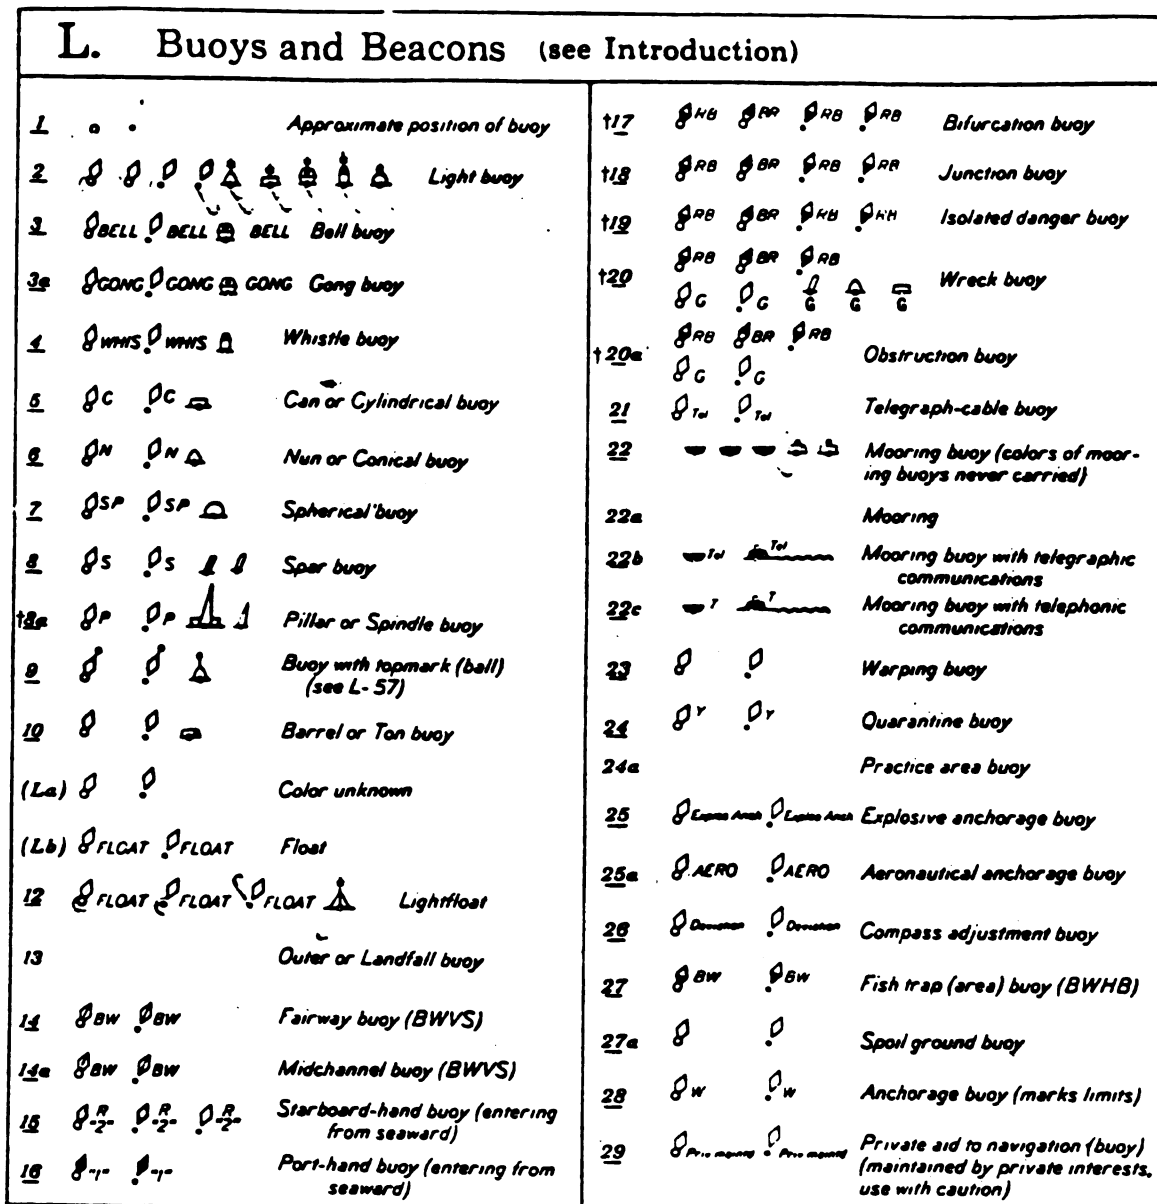 L. Buoys and Beacons (see Introduction)
1 Approximate position of buoy
2 Light buoy
3 BELL BELL BELL Bell buoy
3a GONG GONG GONG Gong buoy
4 WHIS WHIS Whistle buoy
5 C C Can or Cylindrical buoy
6 N N Nun or Conical buoy
7 SP SP Spherical buoy
8 S S Spar buoy
†8a P P Pillar or Spindle buoy
9 Buoy with topmark (ball)
(see L-57)
10 Barrel or Ton buoy
(La) Color unknown
(Lb) FLOAT FLOAT Float
12 FLOAT FLOAT FLOAT Lightfloat
13 Outer or Landfall buoy
14 BW BW Fairway buoy (BWVS)
14a BW BW Midchannel buoy (BWVS)
15 R "2" R "2" R "2" Starboard-hand buoy (entering
from seaward)
16 "1" "1" Port-hand buoy (entering from
seaward)
†17 RB BR RB RB Bifurcation buoy
†18 RB BR RB RB Junction buoy
†19 RB BR RB RB Isolated danger buoy
†20 RB BR RB Wreck buoy
G G G G G
†20a RB BR RB Obstruction buoy
G G
21 Tel Tel Telegraph-cable buoy
22 Mooring buoy (colors of moor-
ing buoys never carried)
22a Mooring
22b Tel Tel Mooring buoy with telegraphic
communications
22c T T Mooring buoy with telephonic
communications
23 Warping buoy
24 Y Y Quarantine buoy
24a Practice area buoy
25 Explos Anch Explos Anch Explosive anchorage buoy
25a AERO AERO Aeronautical anchorage buoy
26 Deviation Deviation Compass adjustment buoy
27 BW BW Fish trap (area) buoy (BWHB)
27a Spoil ground buoy
28 W W Anchorage buoy (marks limits)
29 Priv maintd Priv maintd Private aid to navigation (buoy)
(maintained by private interests,
use with caution)